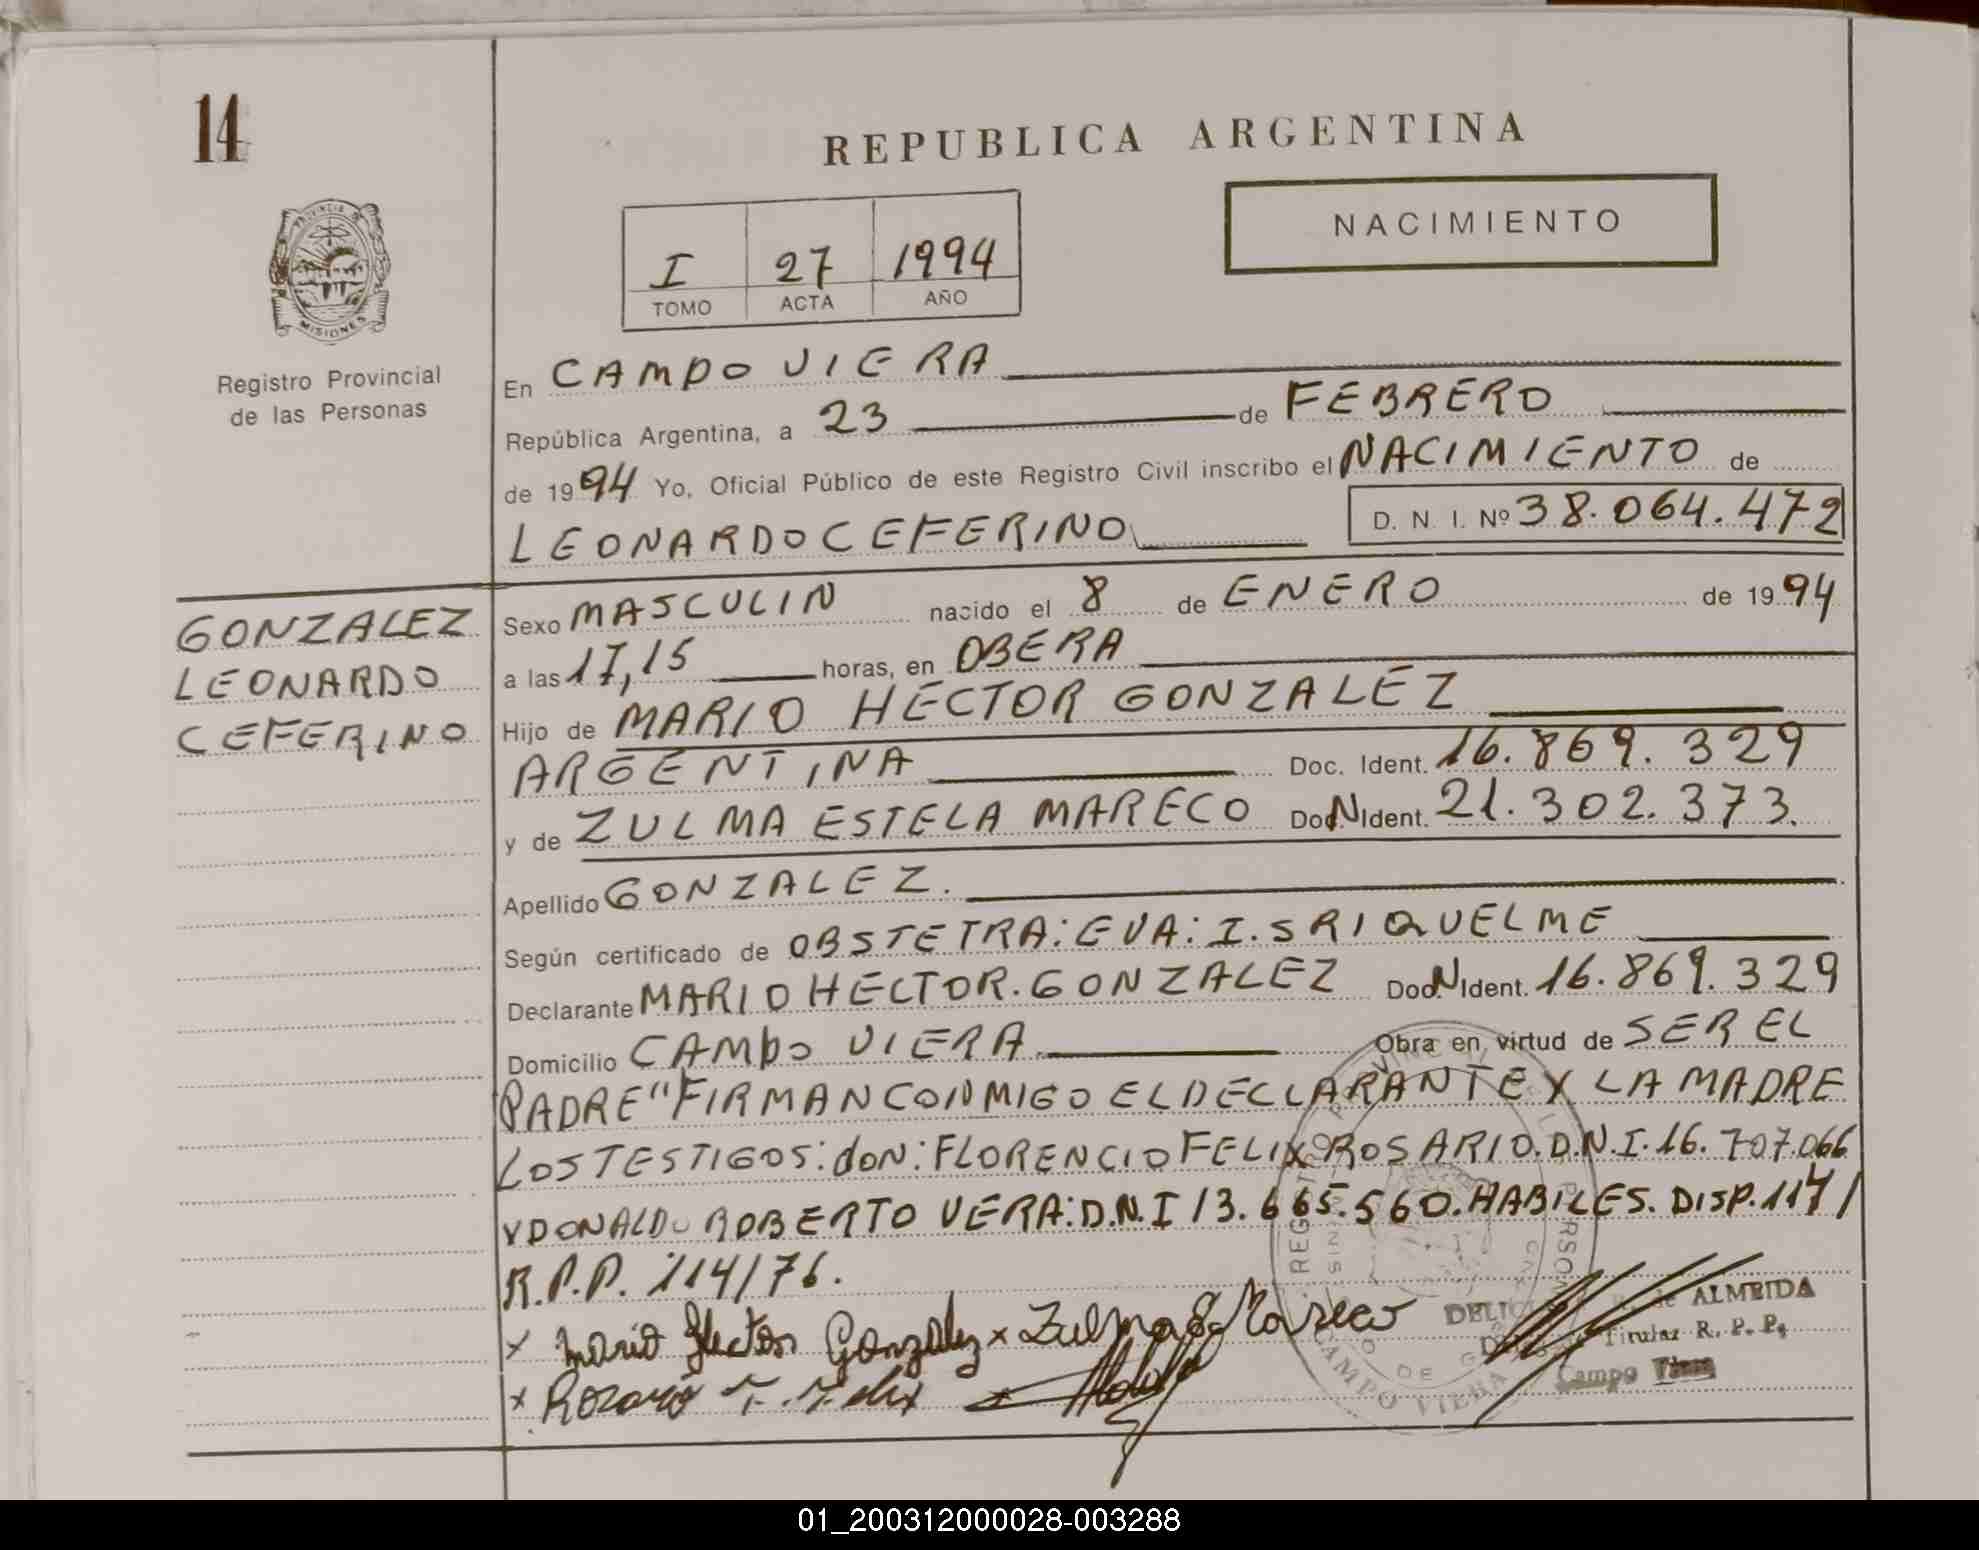 14
REPUBLICA ARGENTINA
NACIMIENTO
I 27 1994
TOMO ACTA AÑO
PROVINCIA DE MISIONES
Registro Provincial
de las Personas
En CAMPO VIERA
República Argentina, a 23 de FEBRERO
de 1994 Yo, Oficial Público de este Registro Civil inscribo el NACIMIENTO de
LEONARDO CEFERINO D. N. I. Nº 38.064.472
GONZALEZ
LEONARDO
CEFERINO
Sexo MASCULIN nacido el 8 de ENERO de 1994
a las 17,15 horas, en OBERA
Hijo de MARIO HECTOR GONZALEZ
ARGENTINA Doc. Ident. 16.869.329
y de ZULMA ESTELA MARECO Doc. N Ident. 21.302.373.
Apellido GONZALEZ.
Según certificado de OBSTETRA: EVA: I. S RIQUELME
Declarante MARIO HECTOR. GONZALEZ Doc. N Ident. 16.869.329
Domicilio CAMPO VIERA Obra en virtud de SER EL
PADRE" FIRMAN CONMIGO EL DECLARANTE Y LA MADRE
LOS TESTIGOS: don: FLORENCIO FELIX ROSARIO. D.N.I. 16.707.066
Y DONALDO ROBERTO VERA: D.N.I 13.665.560. HABILES. DISP. 114/
R.P.P. 114/76.
x Mario Hector Gonzalez x Zulma E. Mareco
x Rozario F. Felix x
de ALMEIDA
Titular R. P. P.
Campo Viera
REGISTRO PROVINCIAL DE
CAMPO VIERA
01_200312000028-003288